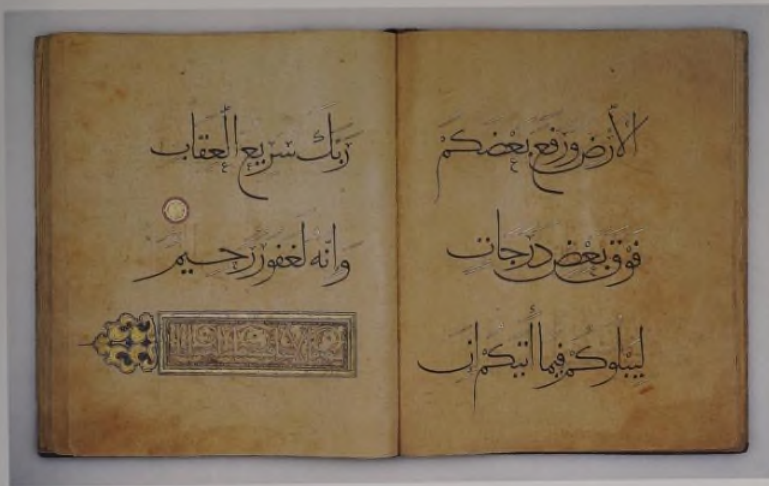 الْأَرْضِ وَرَفَعَ بَعْضَكُمْ
فَوْقَ بَعْضٍ دَرَجَاتٍ
لِيَبْلُوَكُمْ فِيمَا أَتَيكُمْ إِنَّ
رَبَّكَ سَرِيعُ الْعِقَابِ
وَإِنَّهُ لَغَفُورٌ رَحِيمٌ